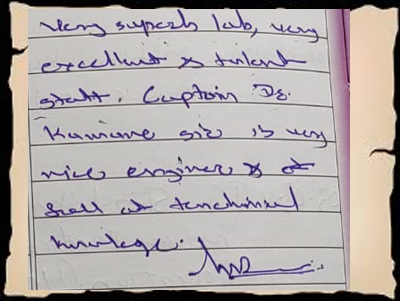 very superb lab, very
excellent & talent
staff. Captain Dr.
Kumane sir is very
nice engineer &
full of technical
knowledge.